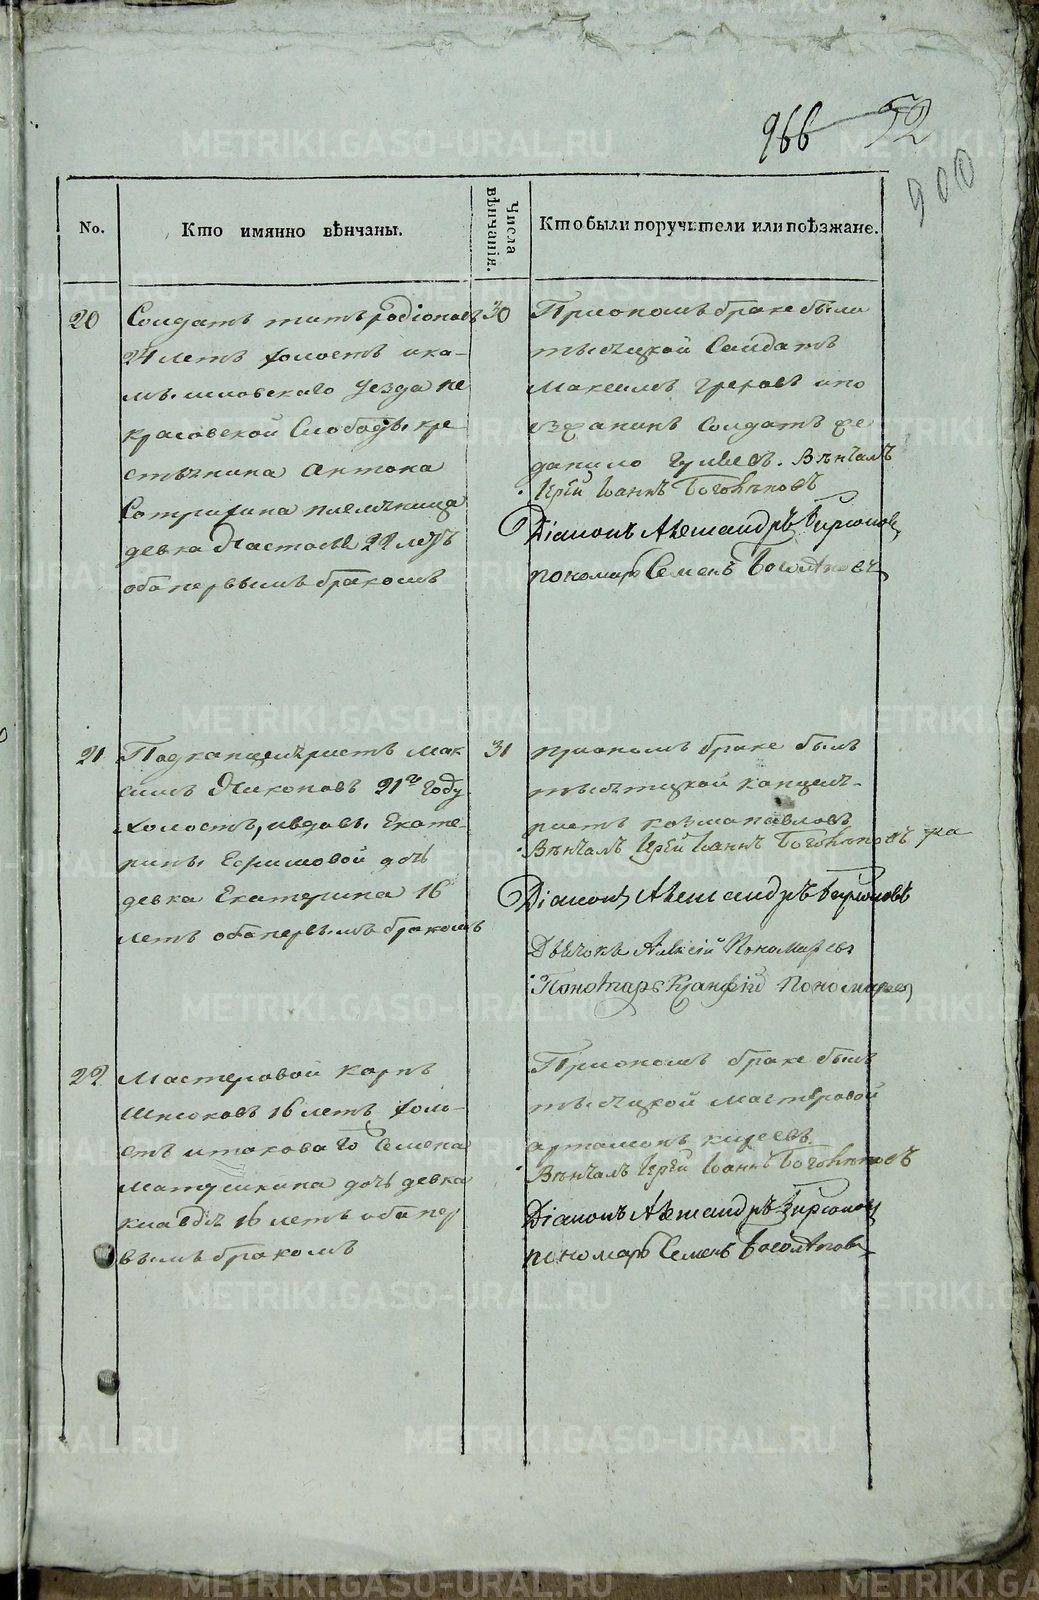 966 52
900
No.
Кто имянно вѣнчаны.
Числа вѣнчанія.
Кто были поручители или поѣзжане.
20
Солдатъ титъ родіоновъ
24 летъ холостъ ика-
мышловскаго уезда не
красовской Слободы кре
стьянина антона
племяница
девка Настасья 22 летъ
оба первымъ бракомъ
30
Приономъ браке были
тысяцкой Салдатъ
Максимъ греховъ ипо
езжанинъ Солдатъ
данило Вѣнчалъ
Іерей Іоаннъ Боголѣповъ
Діаконъ Александръ Бирюковъ
пономарь Семенъ Боголѣповъ
21
Подканцеляристъ Мак
симъ Никоновъ 21го году
холостъ, ивдовы Екате
рины Ефимовой дочь
девка Екатерина 16
летъ оба первымъ бракомъ
31
приономъ браке былъ
тысяцкой канцеля-
ристъ козма павловъ
Вѣнчалъ Іерей Іоаннъ Боголѣповъ
Діаконъ Александръ Бирюковъ
Дьячокъ Алексій Пономаревъ
Пономарь Пономаревъ
22
Мастеровой карпъ
16 летъ холо-
стъ итаковаго Семена
Матушкина дочь девка
клавдія 16 летъ оба пер
вымъ бракомъ
Приономъ браке былъ
тысяцкой мастеровой
артамонъ киреевъ
Вѣнчалъ Іерей Іоаннъ Боголѣповъ
Діаконъ Александръ Бирюковъ
пономарь Семенъ Боголѣповъ
METRIKI.GASO-URAL.RU